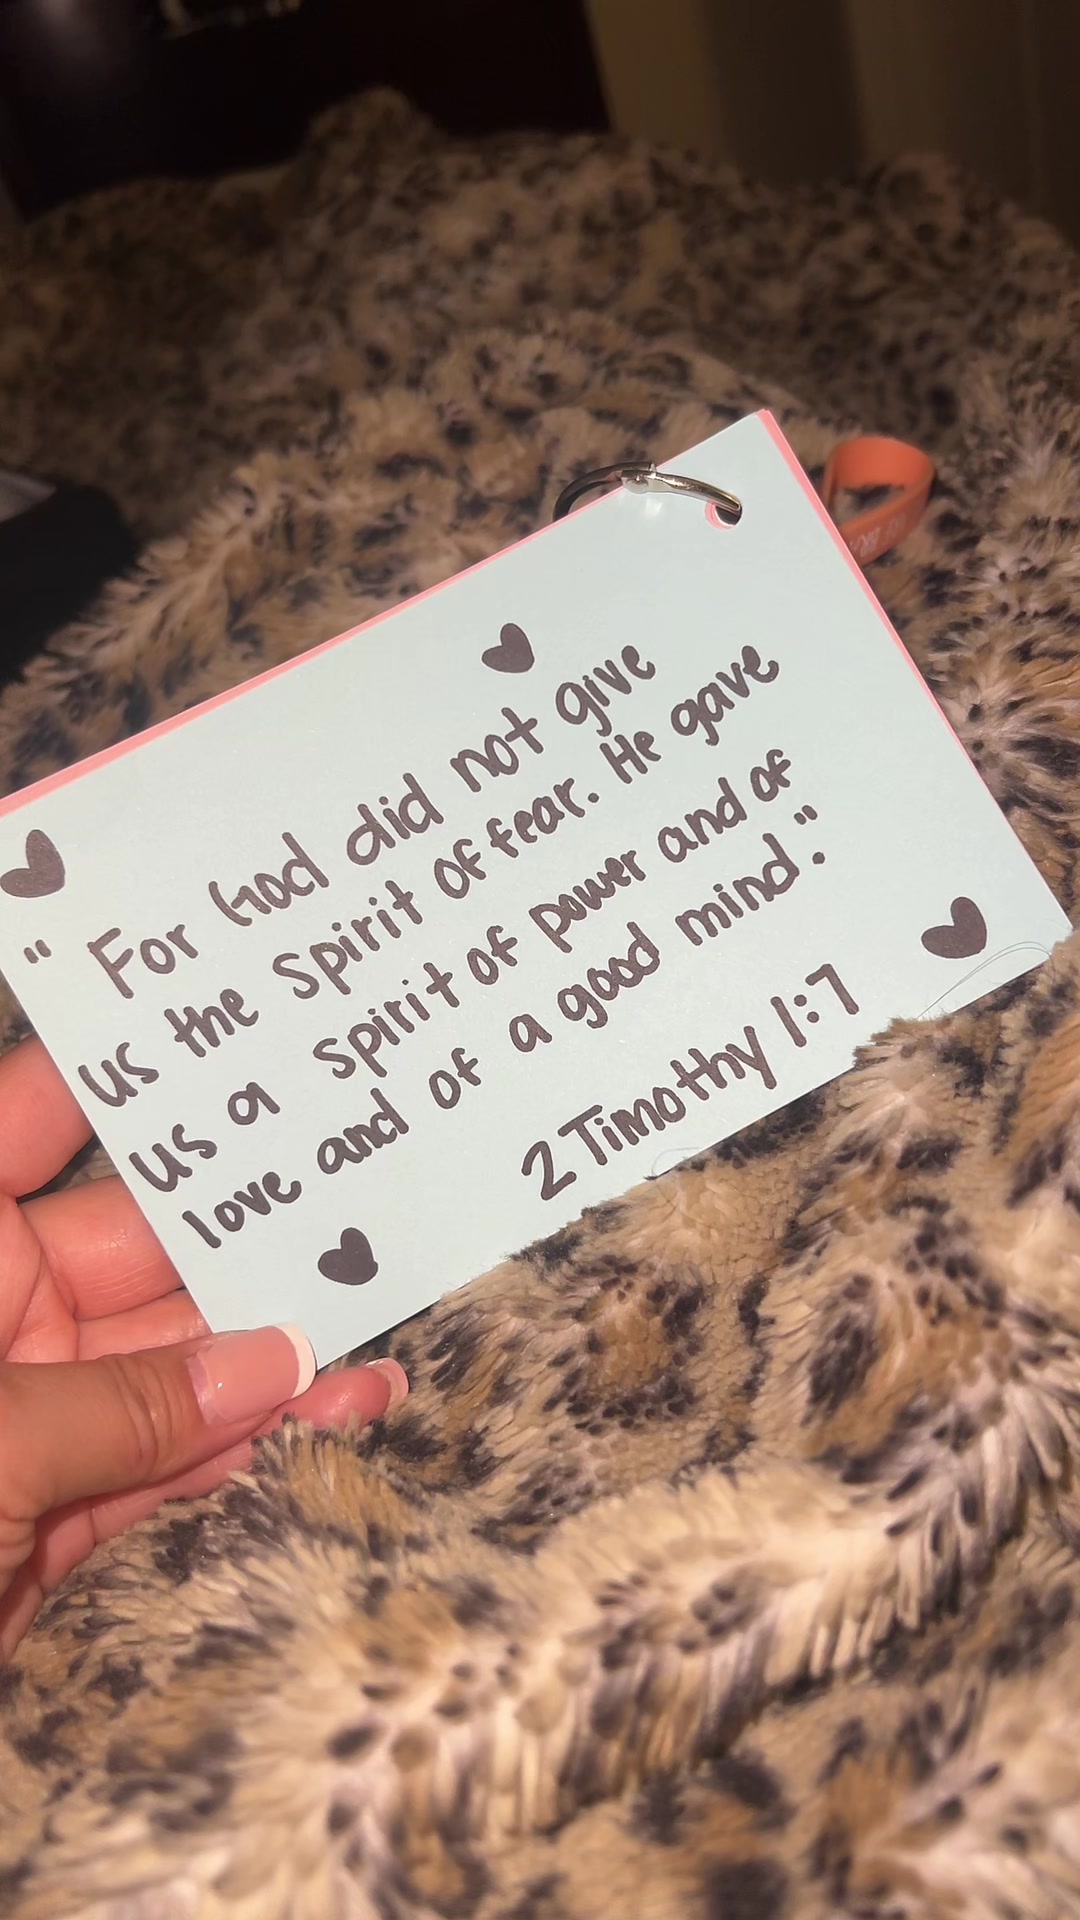 " For God did not give
us the Spirit of fear. He gave
us a spirit of power and of
love and of a good mind."
2 Timothy 1:7